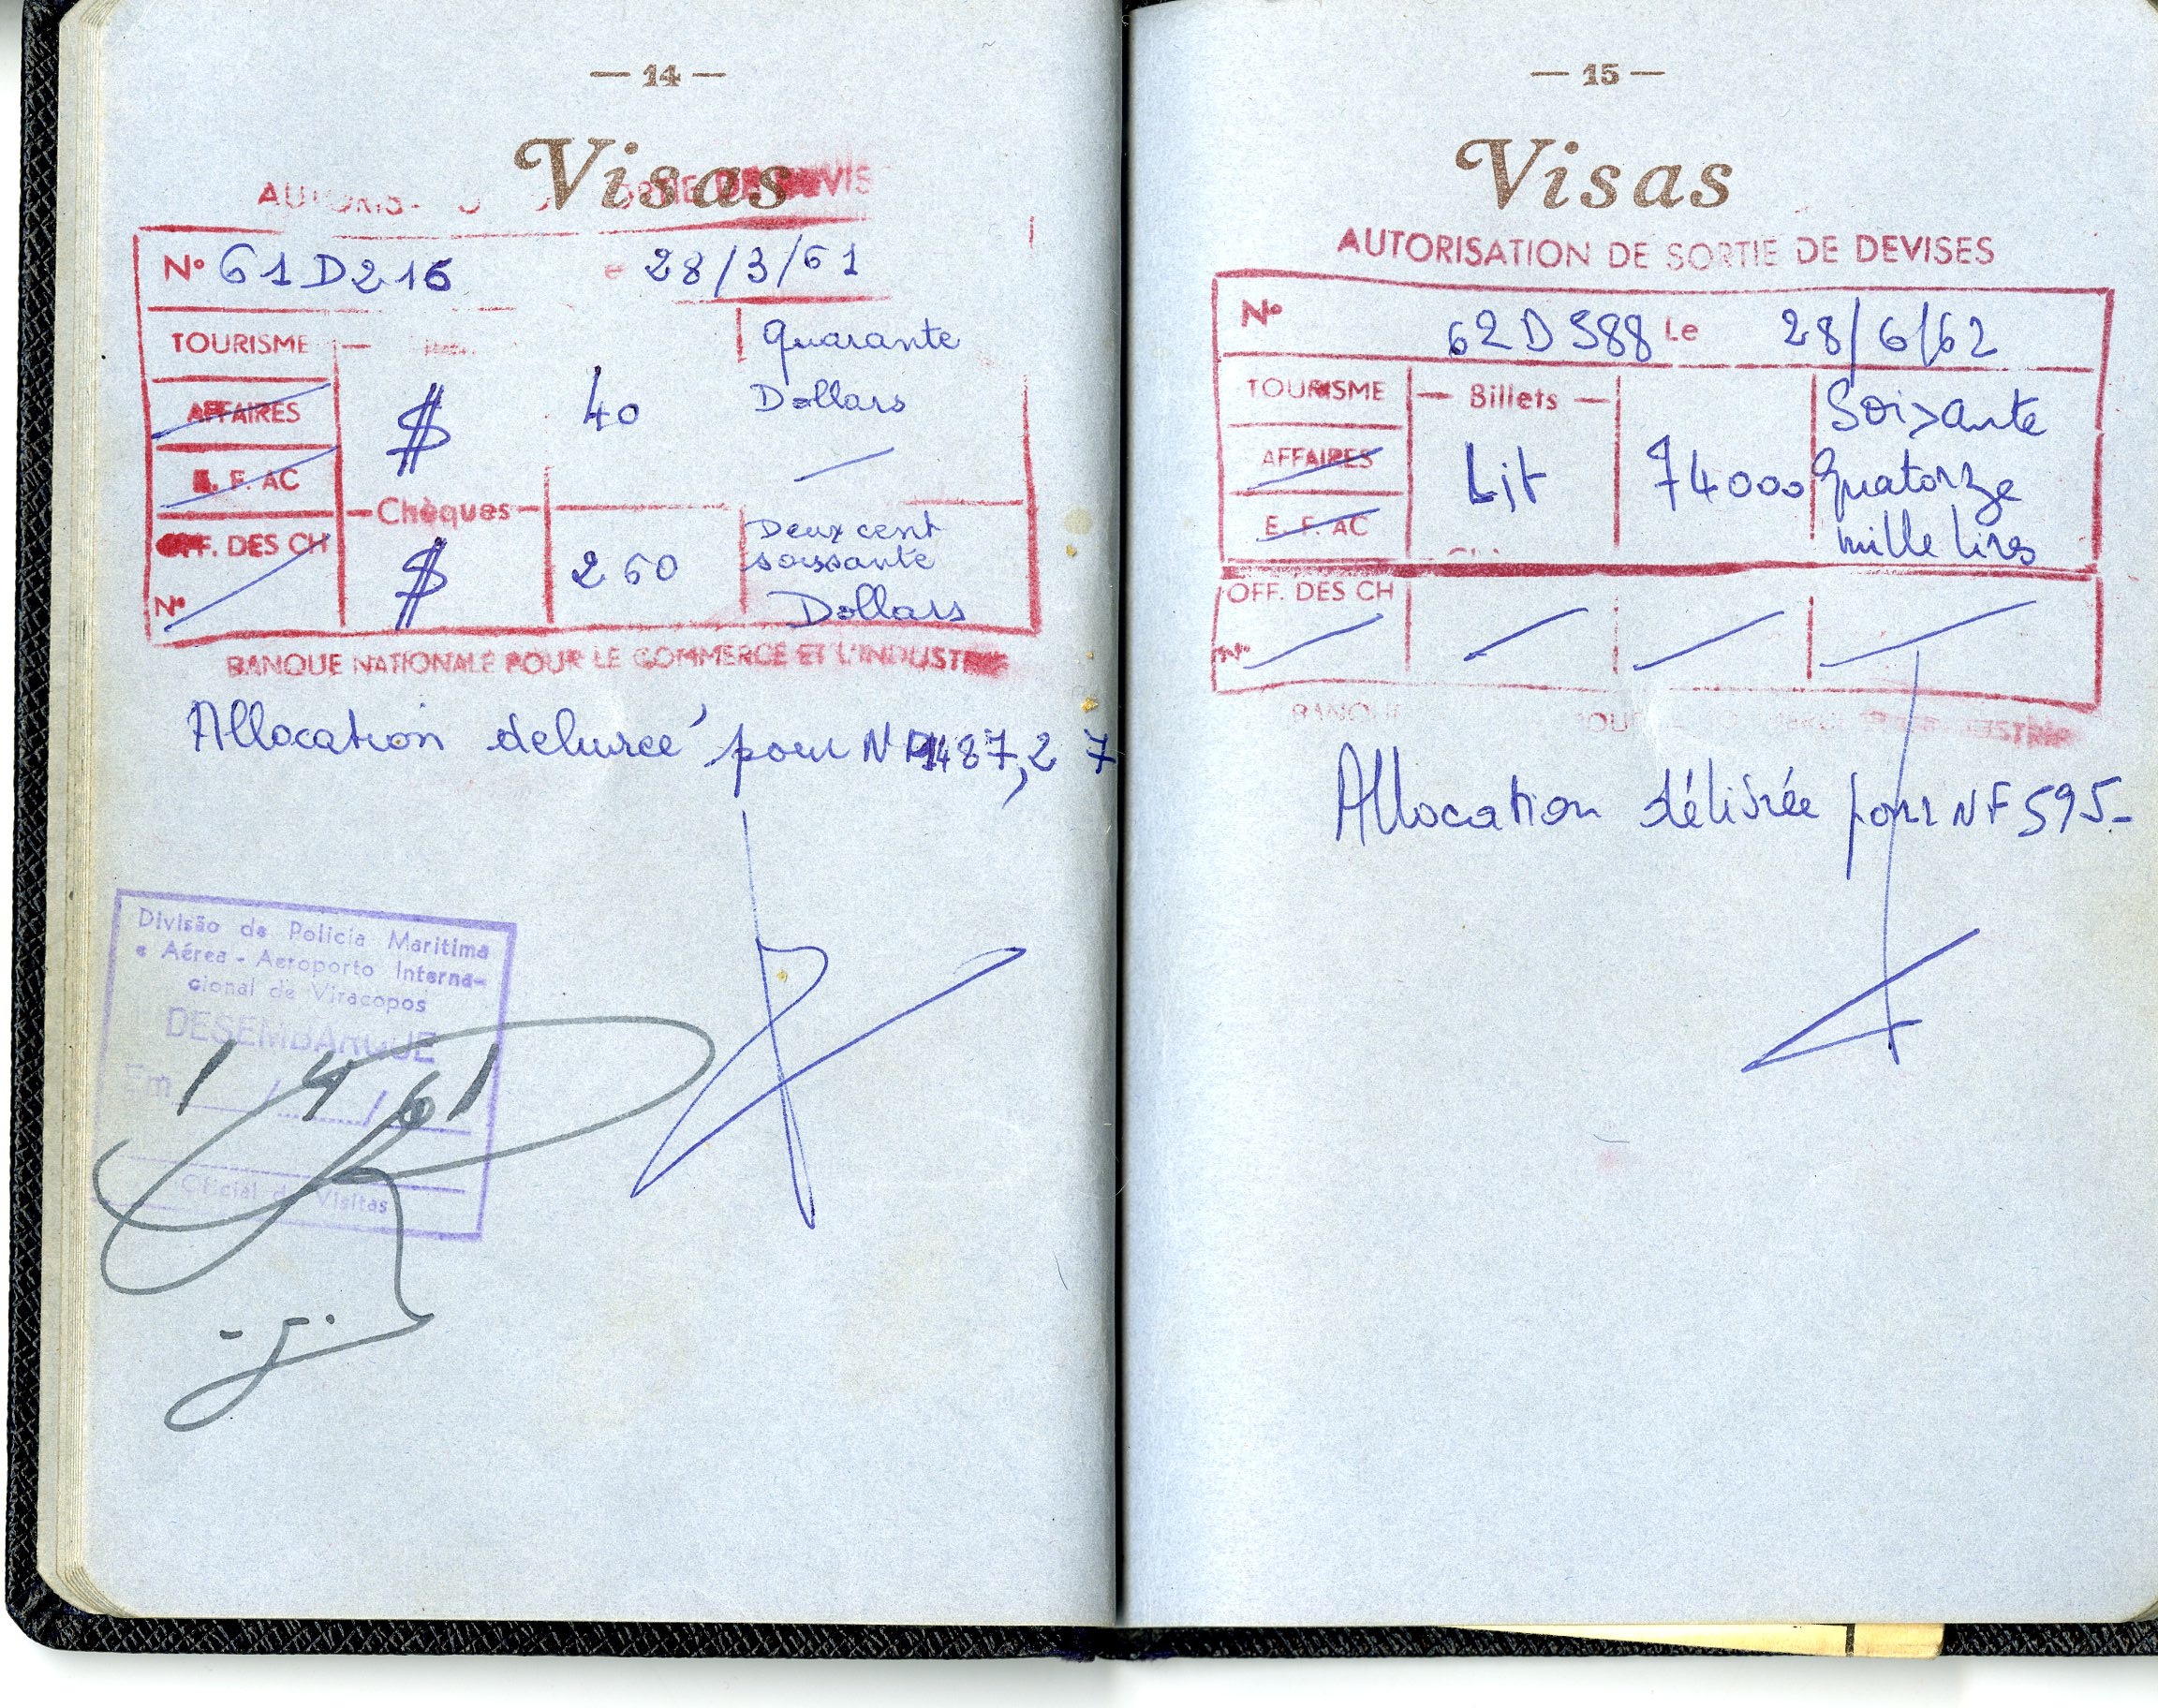 — 14 —
Visas
AUTORIS SORTIE DE DEVIS
Nº 61D216 e 28/3/61
TOURISME
AFFAIRES
E. F. AC
OFF. DES CH
Nº
$ 40 Quarante
Dollars
— Chèques —
$ 260 Deux cent
soissante
Dollars
BANQUE NATIONALE POUR LE COMMERCE ET L'INDUSTRIE
Allocation delivreé pour NF 1487,27
Divisão de Policia Maritima
e Aérea - Aeroporto Interna-
cional de Viracopos
DESEMBARQUE
Em 1 / 4 / 61
Oficial de Visitas
— 15 —
Visas
AUTORISATION DE SORTIE DE DEVISES
Nº 62D588 Le 28/6/62
TOURISME
AFFAIRES
E. F. AC
— Billets —
Lit 74000 Soixante
Quatorze
mille lires
OFF. DES CH
Nº
BANQUE POUR LE COMMERCE INDUSTRIE
Allocation délivrée pour NF 595-